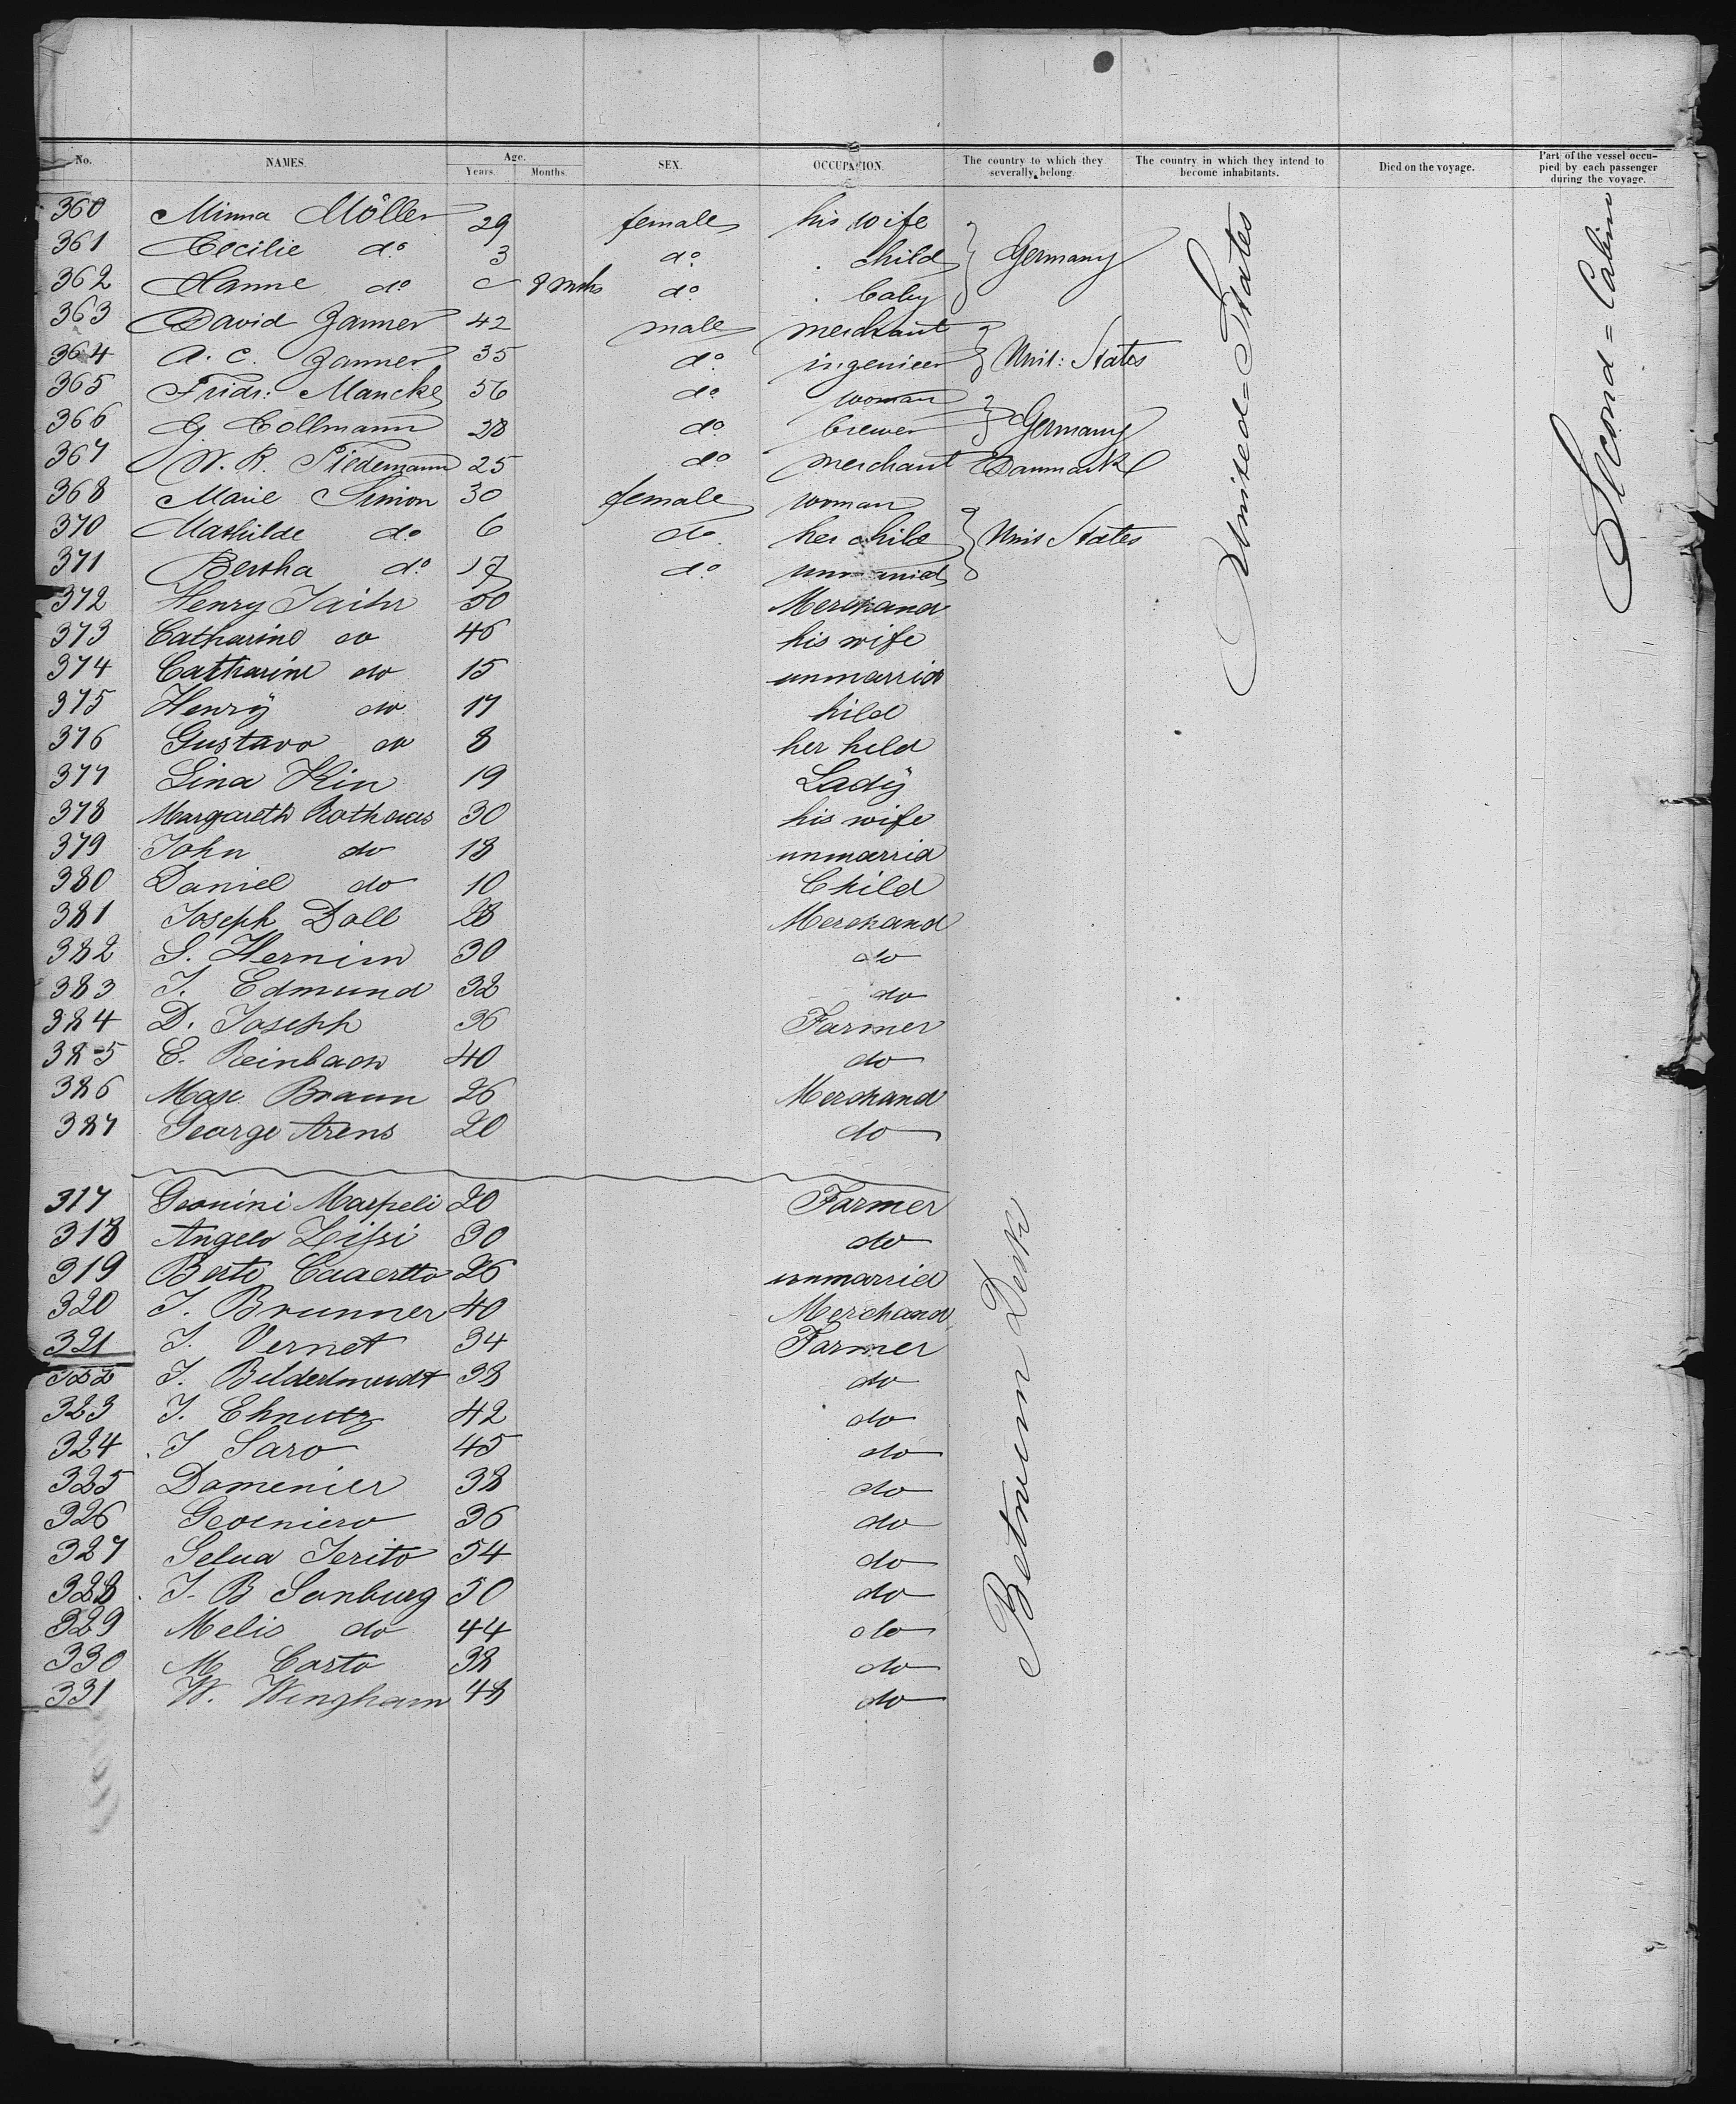 No. NAMES. Age. Years. Months. SEX. OCCUPATION. The country to which they severally belong. The country in which they intend to become inhabitants. Died on the voyage. Part of the vessel occupied by each passenger during the voyage.
360 Minna Möller 29 female his wife
361 Cecilie do 3 do child Germany
362 Hanne do 8 mths do baby
363 David Zanner 42 male merchant
364 A. C. Zanner 35 do ingenieer Unit: States
365 Fridr: Mancke 56 do woman
366 G. Collmann 28 do brewer Germany
367 W. R. Tiedemann 25 do merchant Danmark
368 Marie Simon 30 female woman
370 Mathilde do 6 do her child Unit States
371 Bertha do 17 do unmarried
372 Henry 50 Merchand
373 Catharine do 46 his wife
374 Catharine do 15 unmarrid
375 Henrÿ do 17 hild
376 Gustavo do 8 her hild
377 Lina Kin 19 Ladÿ
378 Margareth 30 his wife
379 John do 18 unmarrid
380 Daniel do 10 Child
381 Joseph Doll 28 Merchand
382 S. Hernim 30 do
383 J. Edmund 32 do
384 D. Joseph 36 Farmer
385 E. Reinbach 40 do
386 Max Braun 26 Merchand
387 George Arens 20 do
317 Geonini Marpeli 20 Farmer
318 Angelo 30 do
319 Berto 26 unmarrid
320 J. Brunner 40 Merchand
321 J. Vernet 34 Farmer
322 J. 38 do
323 J. 42 do
324 J Saro 45 do
325 Domenier 38 do
326 36 do
327 Selua Jerito 54 do
328 J. B Sonburg 50 do
329 Melis do 44 do
330 M Carto 38 do
331 W. Wingham 48 do
United=States
Second=Cabin
Betwen Deck